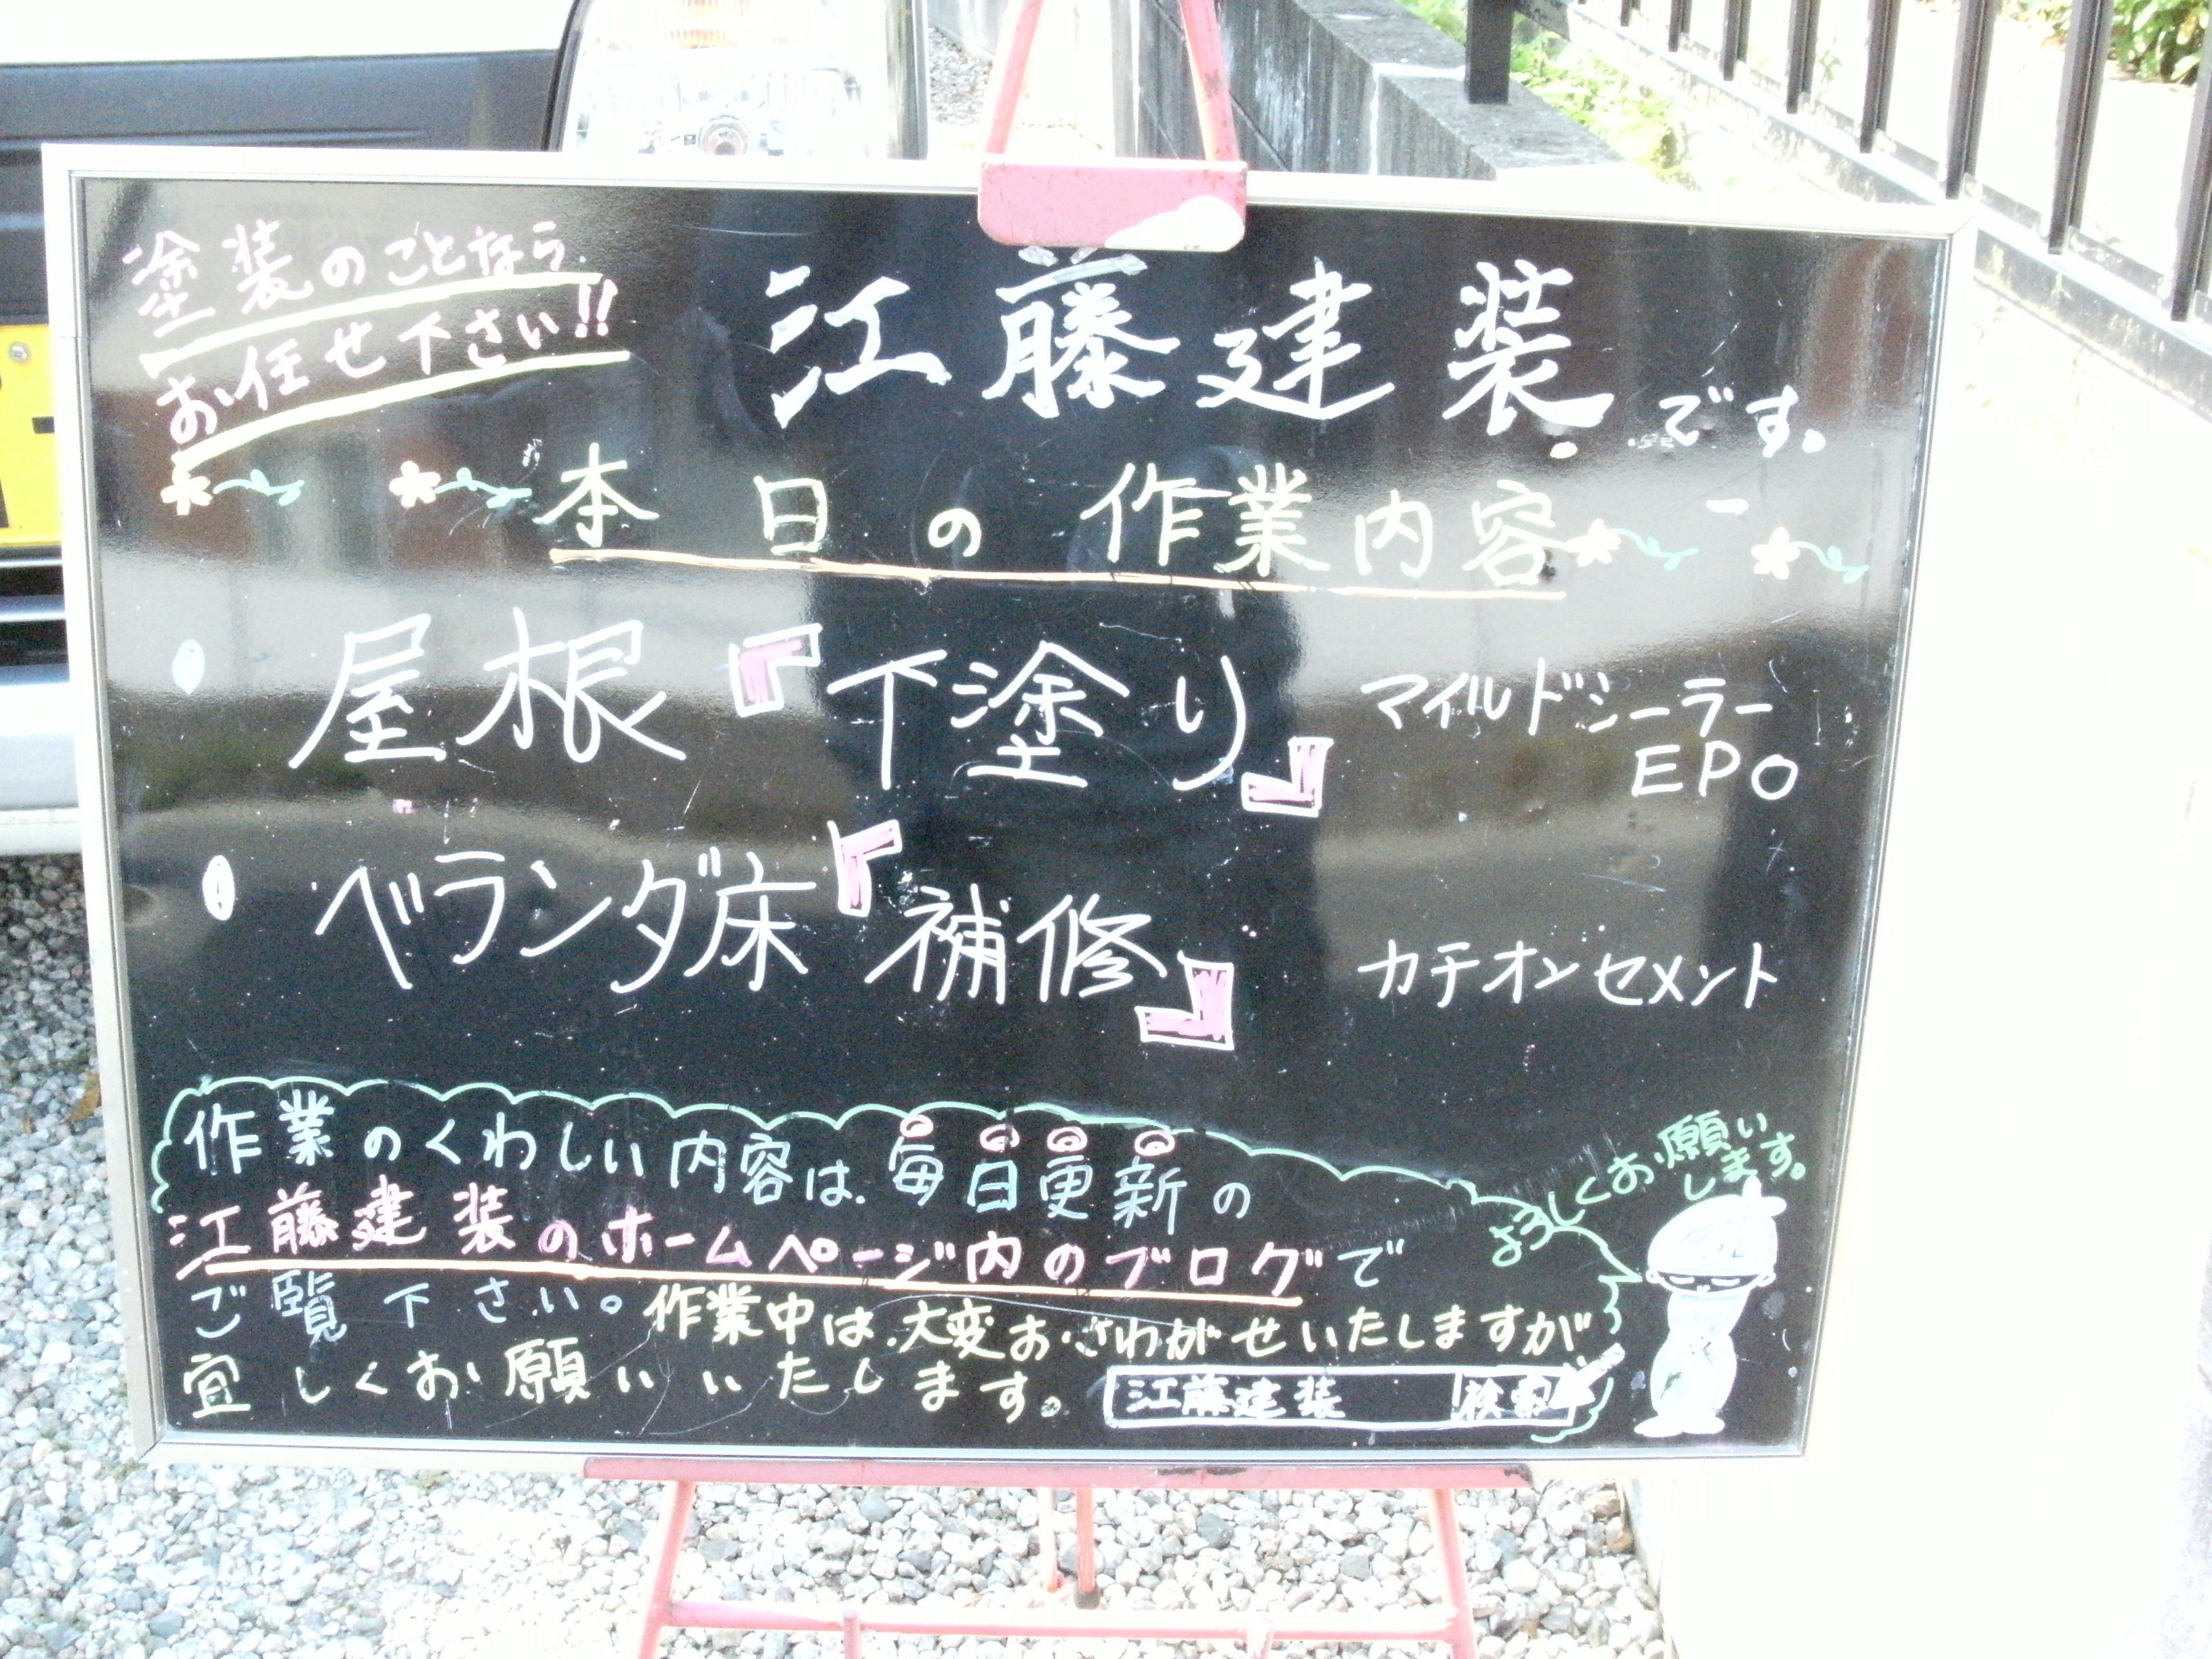 塗装のことなら
お任せ下さい!!
江藤建装です。
本日の作業内容
・屋根『下塗り』 マイルドシーラー
EPO
・ベランダ床『補修』 カチオンセメント
作業のくわしい内容は、毎日更新の
江藤建装のホームページ内のブログで
ご覧下さい。作業中は、大変おさわがせいたしますが
宜しくお願いいたします。
江藤建装 検索
よろしくお願い
します。